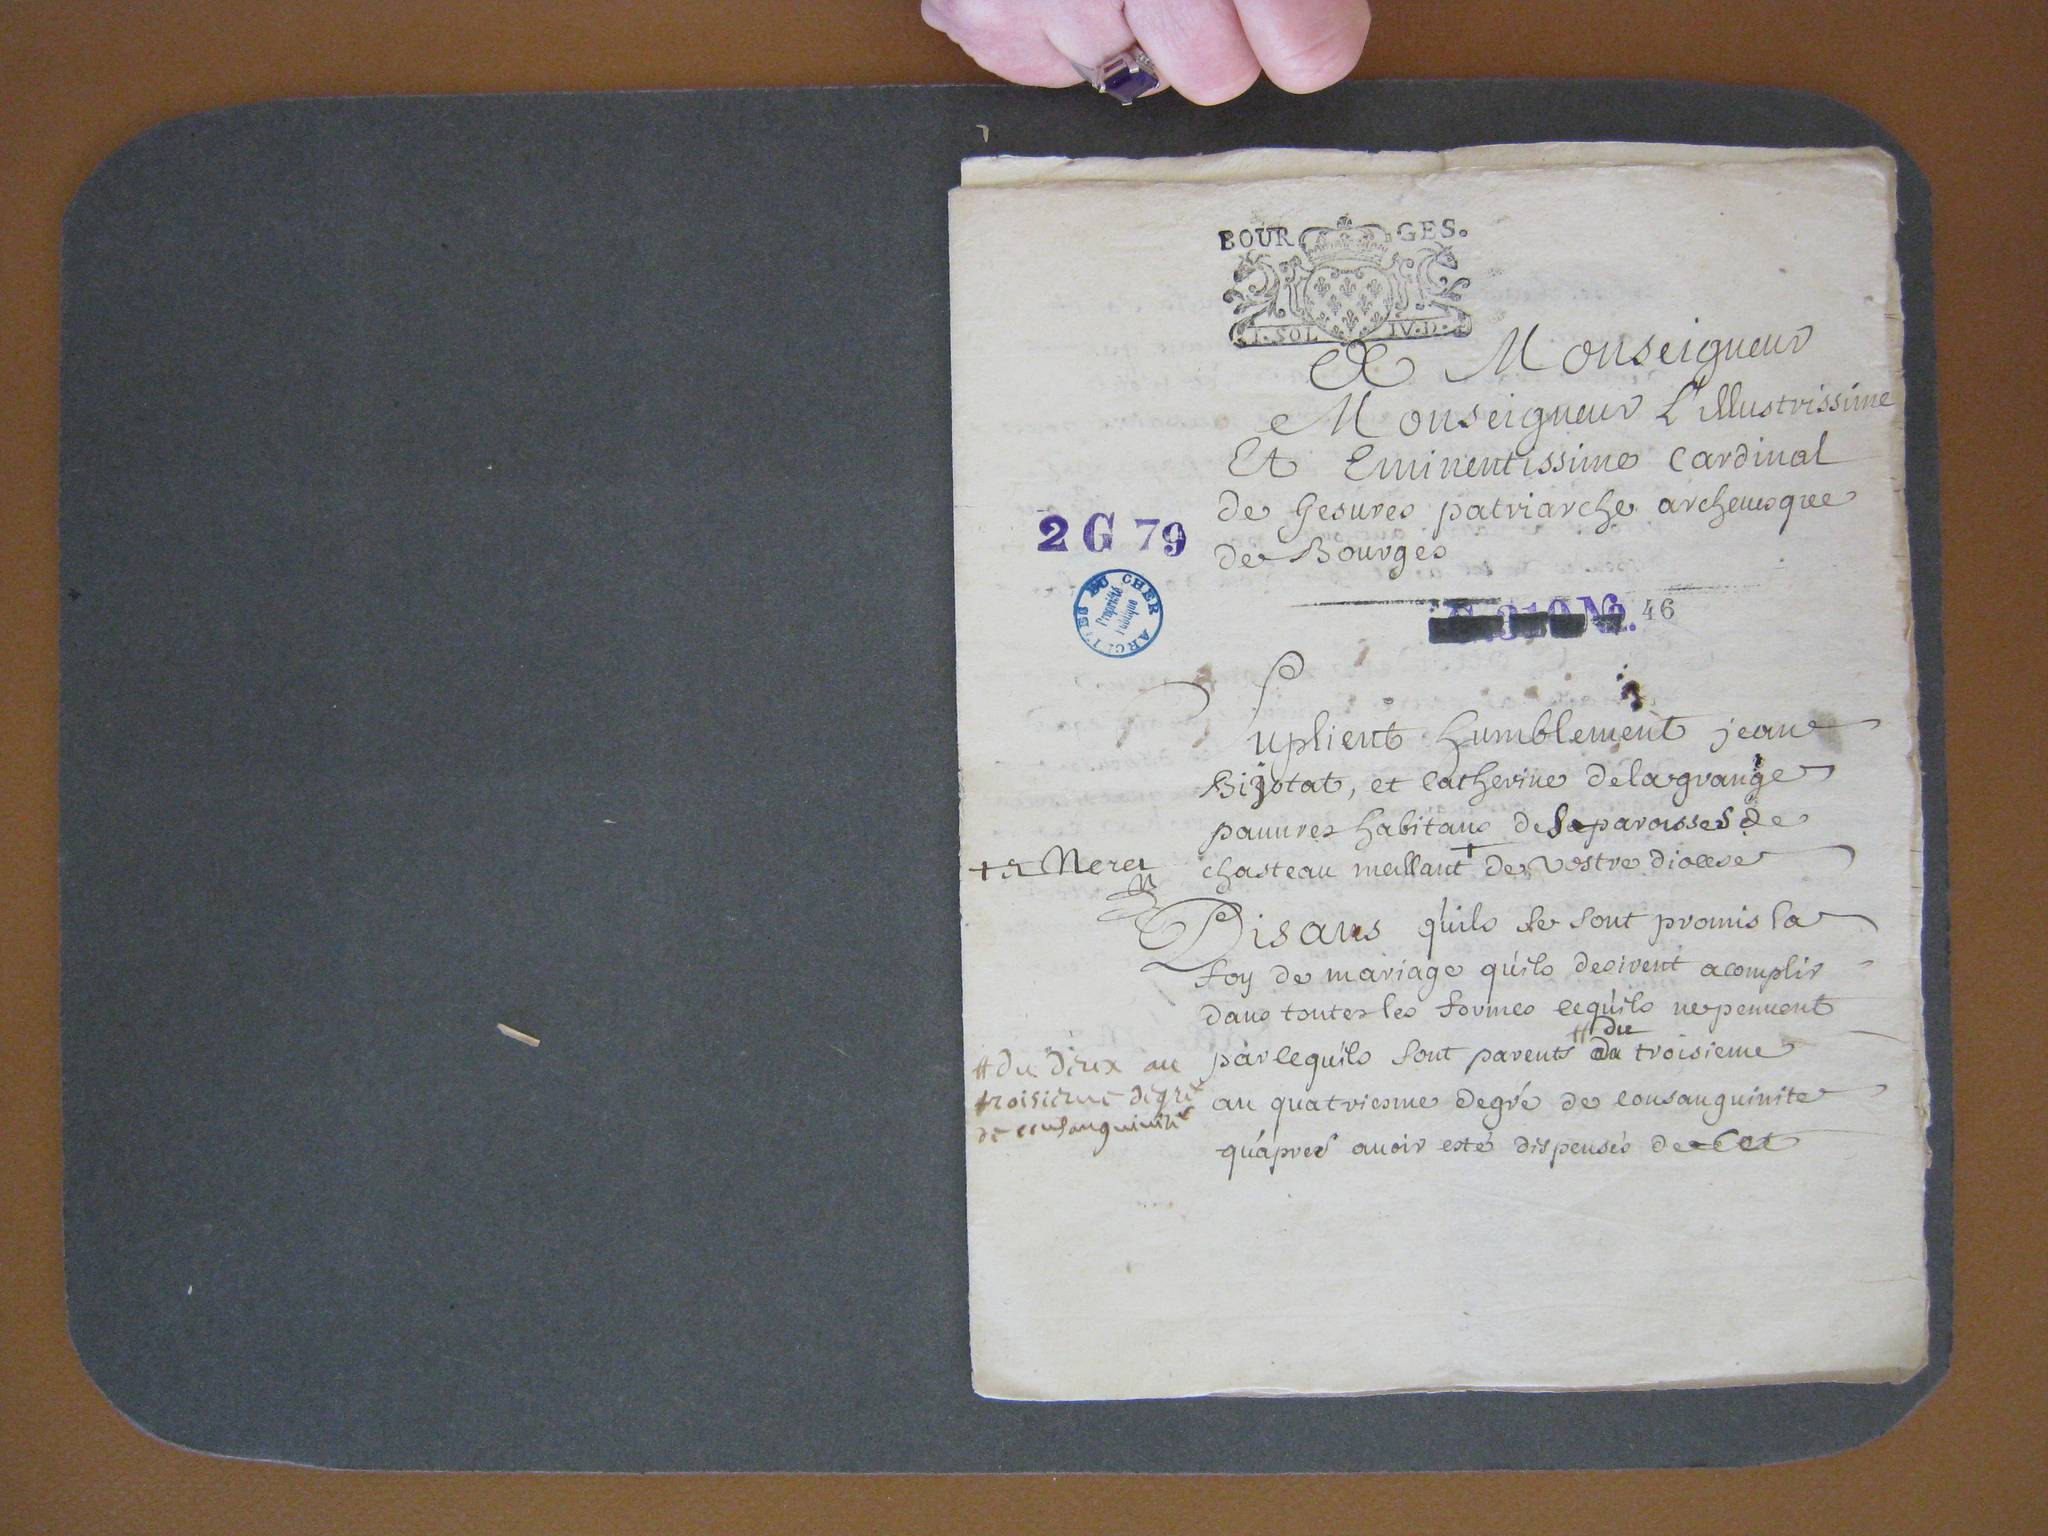 BOURGES.
I. SOL IV. D.
A Monseigneur
Monseigneur L'illustrissime
Et Eminentissime Cardinal
de Gesures patriarche archeuesque
de Bourges
2 G 79
ARCHIVES DU CHER
Propriété
Publique
46
Suplient humblement jean
Bijotat, et Catherine delagrange
pauures habitans de paroisses de
chasteau meillant + de vostre diocese
Disans qu'ils se sont promis la
foy de mariage qu'ils desirent acomplir
dans toutes les formes cequils nepeuuent
du
parcequils sont parents # du troisieme
# du deux au
troisieme degré
de consanguinité
au quatriesme degré de consanguinite
qu'apres auoir esté dispensés de cet